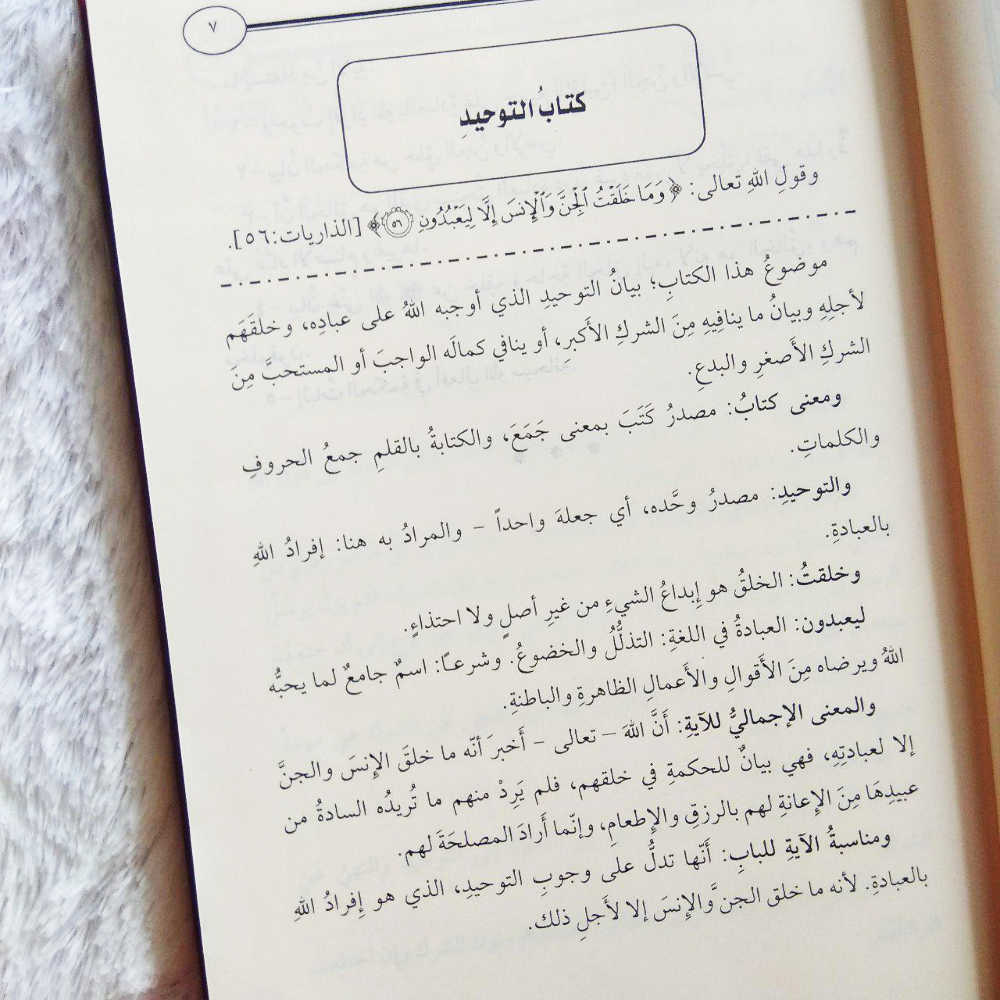 ٧
كتابُ التوحيدِ
وقولِ اللهِ تعالى: ﴿وَمَا خَلَقْتُ ٱلْجِنَّ وَٱلْإِنسَ إِلَّا لِيَعْبُدُونِ ٥٦﴾ [الذاريات:٥٦].
موضوعُ هذا الكتابِ؛ بيانُ التوحيدِ الذي أوجبه اللهُ على عبادِه، وخلقَهَم
لأجلِهِ وبيانُ ما ينافِيهِ مِنَ الشركِ الأَكبرِ، أو ينافي كمالَه الواجبَ أو المستحبَّ مِنَ
الشركِ الأَصغرِ والبدعِ.
ومعنى كتابُ: مصدرُ كَتَبَ بمعنى جَمَعَ، والكتابةُ بالقلمِ جمعُ الحروفِ
والكلماتِ.
والتوحيدِ: مصدرُ وحَّده، أي جعلهَ واحداً – والمرادُ به هنا: إفرادُ اللهِ
بالعبادةِ.
وخلقتُ: الخلقُ هو إِبداعُ الشيءِ من غيرِ أصلٍ ولا احتذاءٍ.
ليعبدون: العبادةُ في اللغةِ: التذلُّلُ والخضوعُ. وشرعـًا: اسمٌ جامعٌ لما يحبُّه
اللهُ ويرضاه مِنَ الأَقوالِ والأَعمالِ الظاهرةِ والباطنةِ.
والمعنى الإجماليُّ للآيةِ: أَنَّ اللهَ – تعالى – أَخبرَ أنّه ما خلقَ الإِنسَ والجنَّ
إلا لعبادتِهِ، فهي بيانٌ للحكمةِ في خلقهم، فلم يَرِدْ منهم ما تُريدُه السادةُ من
عبيدِهَا مِنَ الإِعانةِ لهم بالرزقِ والإِطعامِ، وإنّما أَرادَ المصلحَةَ لهم.
ومناسبةُ الآيةِ للبابِ: أَنّها تدلُّ على وجوبِ التوحيدِ، الذي هو إِفرادُ اللهِ
بالعبادةِ. لأنه ما خلق الجنَّ والإِنسَ إلا لأَجلِ ذلك.